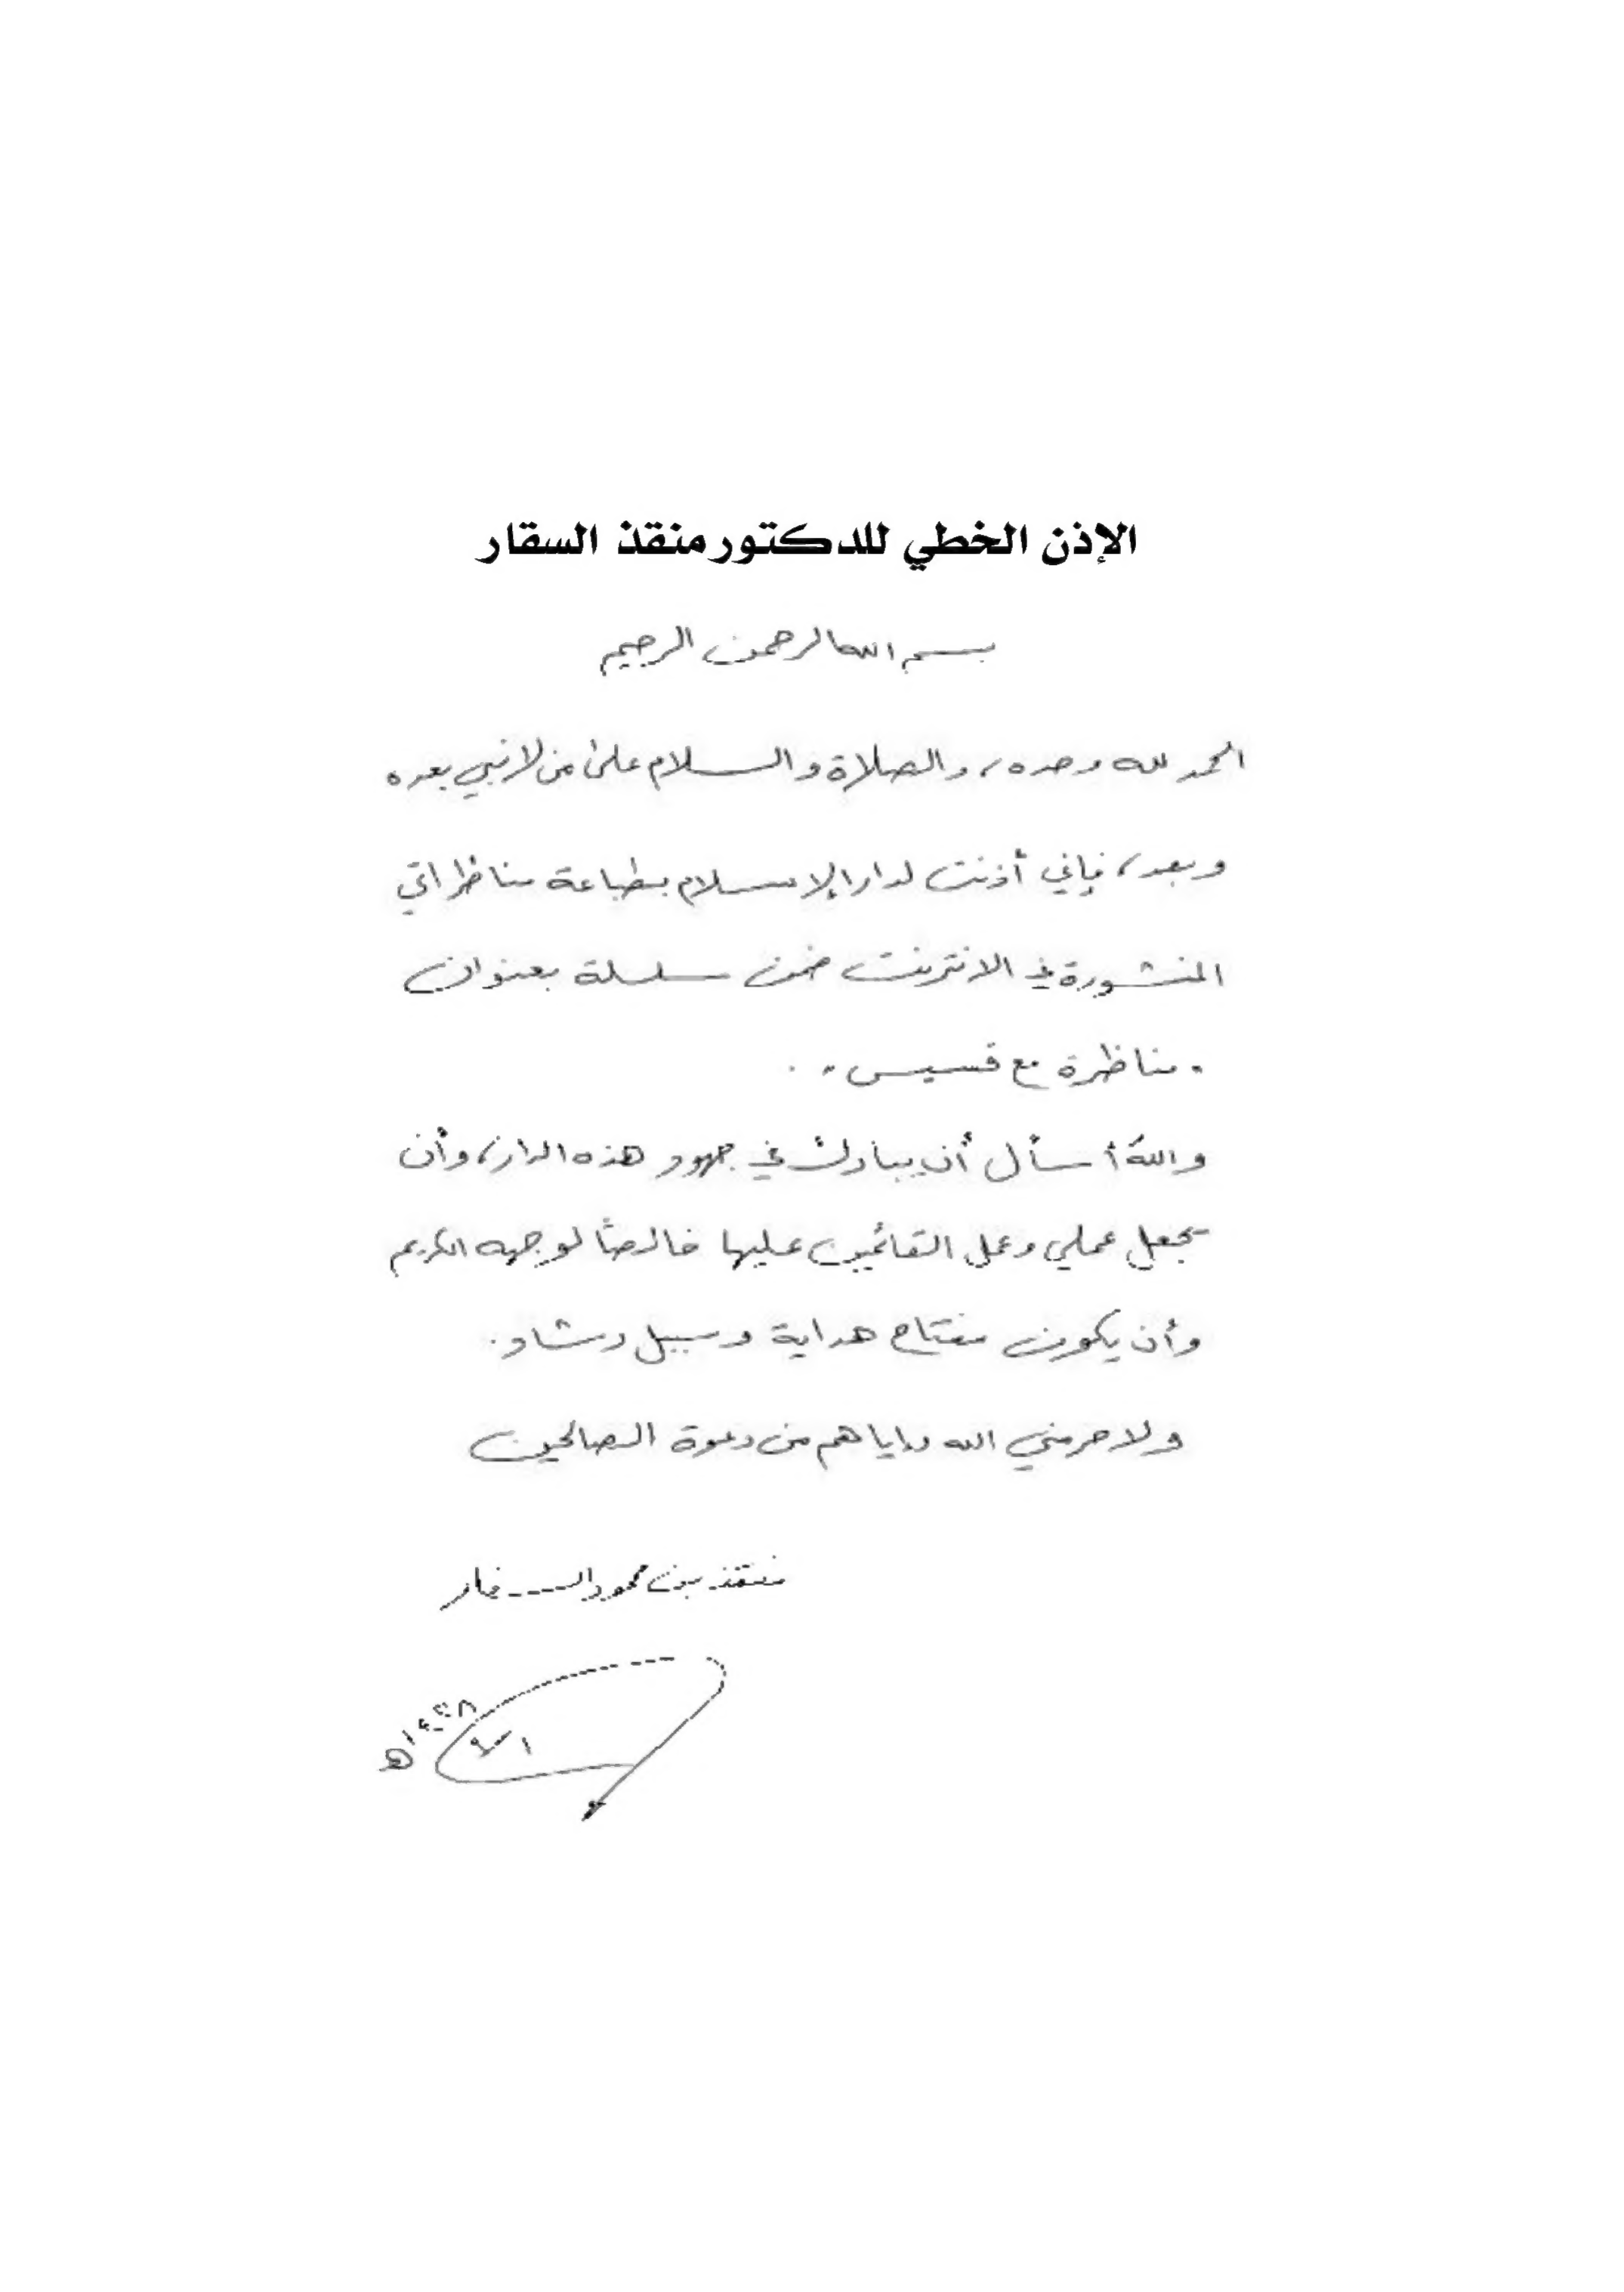 الإذن الخطي للدكتور منقذ السقار
بسم الله الرحمن الرحيم
الحمد لله وحده، والصلاة والسلام على من لا نبي بعده
وبعد، فإني أذنت لدار الإسلام بطباعة مناظراتي
المنشورة في الانترنت ضمن سلسلة بعنوان
"مناظرة مع قسيس".
والله أسأل أن يبارك في جهود هذه الدار، وأن
يجعل عملي وعمل القائمين عليها خالصاً لوجهه الكريم
وأن يكون مفتاح هداية وسبيل رشاد.
ولا حرمني الله وإياهم من دعوة الصالحين
منقذ بن محمود السقار
١٤٢٨هـ